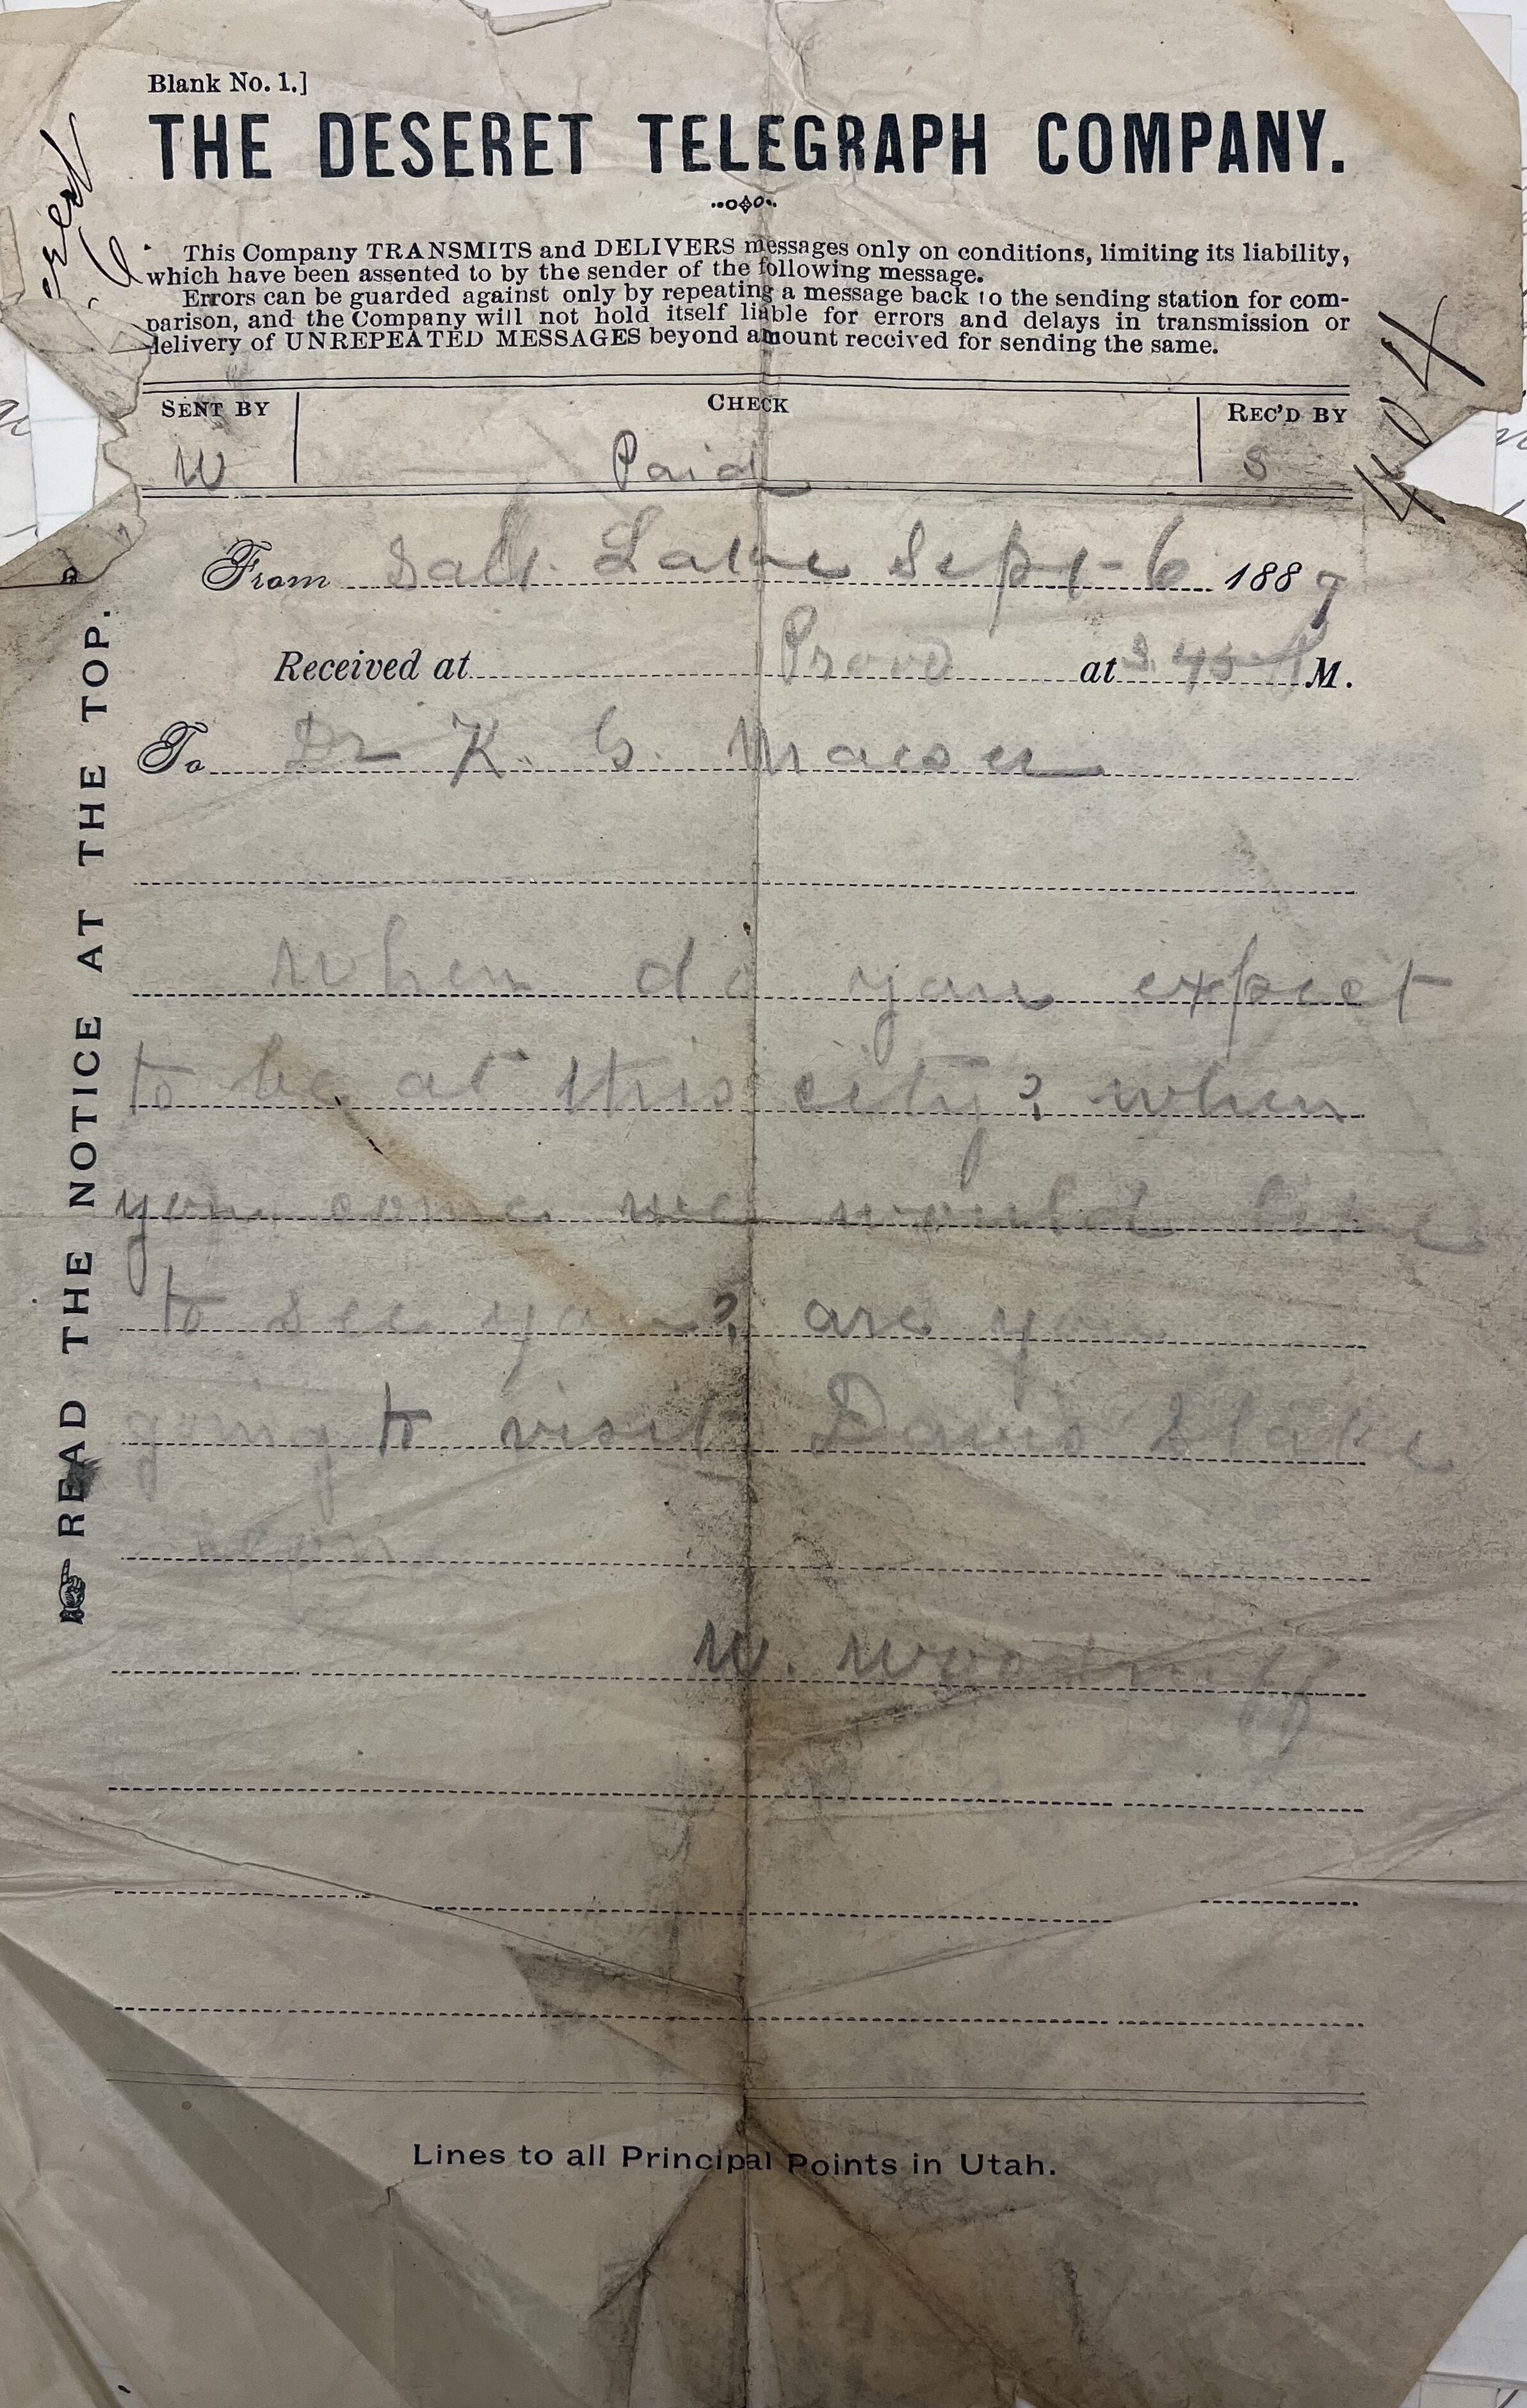 Blank No. 1.]
THE DESERET TELEGRAPH COMPANY.
This Company TRANSMITS and DELIVERS messages only on conditions, limiting its liability,
which have been assented to by the sender of the following message.
Errors can be guarded against only by repeating a message back to the sending station for com-
parison, and the Company will not hold itself liable for errors and delays in transmission or
delivery of UNREPEATED MESSAGES beyond amount received for sending the same.
SENT BY CHECK REC'D BY
W Paid S
404
From Salt Lake Sept-6 1887
Received at Provo at 3.45 P M.
To Dr K. G. Maeser
When do you expect
to be at this city? when
you come we would like
to see you? are you
going to visit Davis Stake
soon
W. Woodruff
READ THE NOTICE AT THE TOP.
Lines to all Principal Points in Utah.